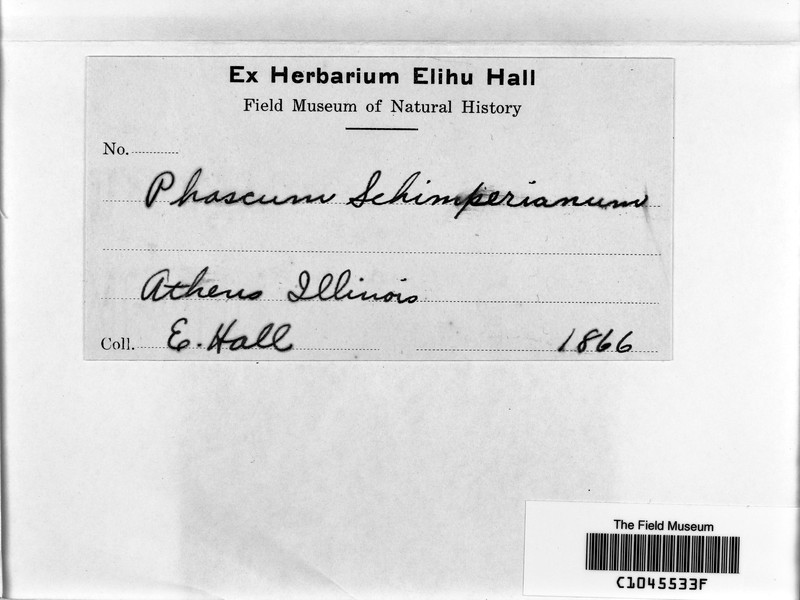 Ex Herbarium Elihu Hall
Field Museum of Natural History
No.
Phascum Schimperianum
Athens Illinois
Coll. E. Hall 1866
The Field Museum
C1045533F